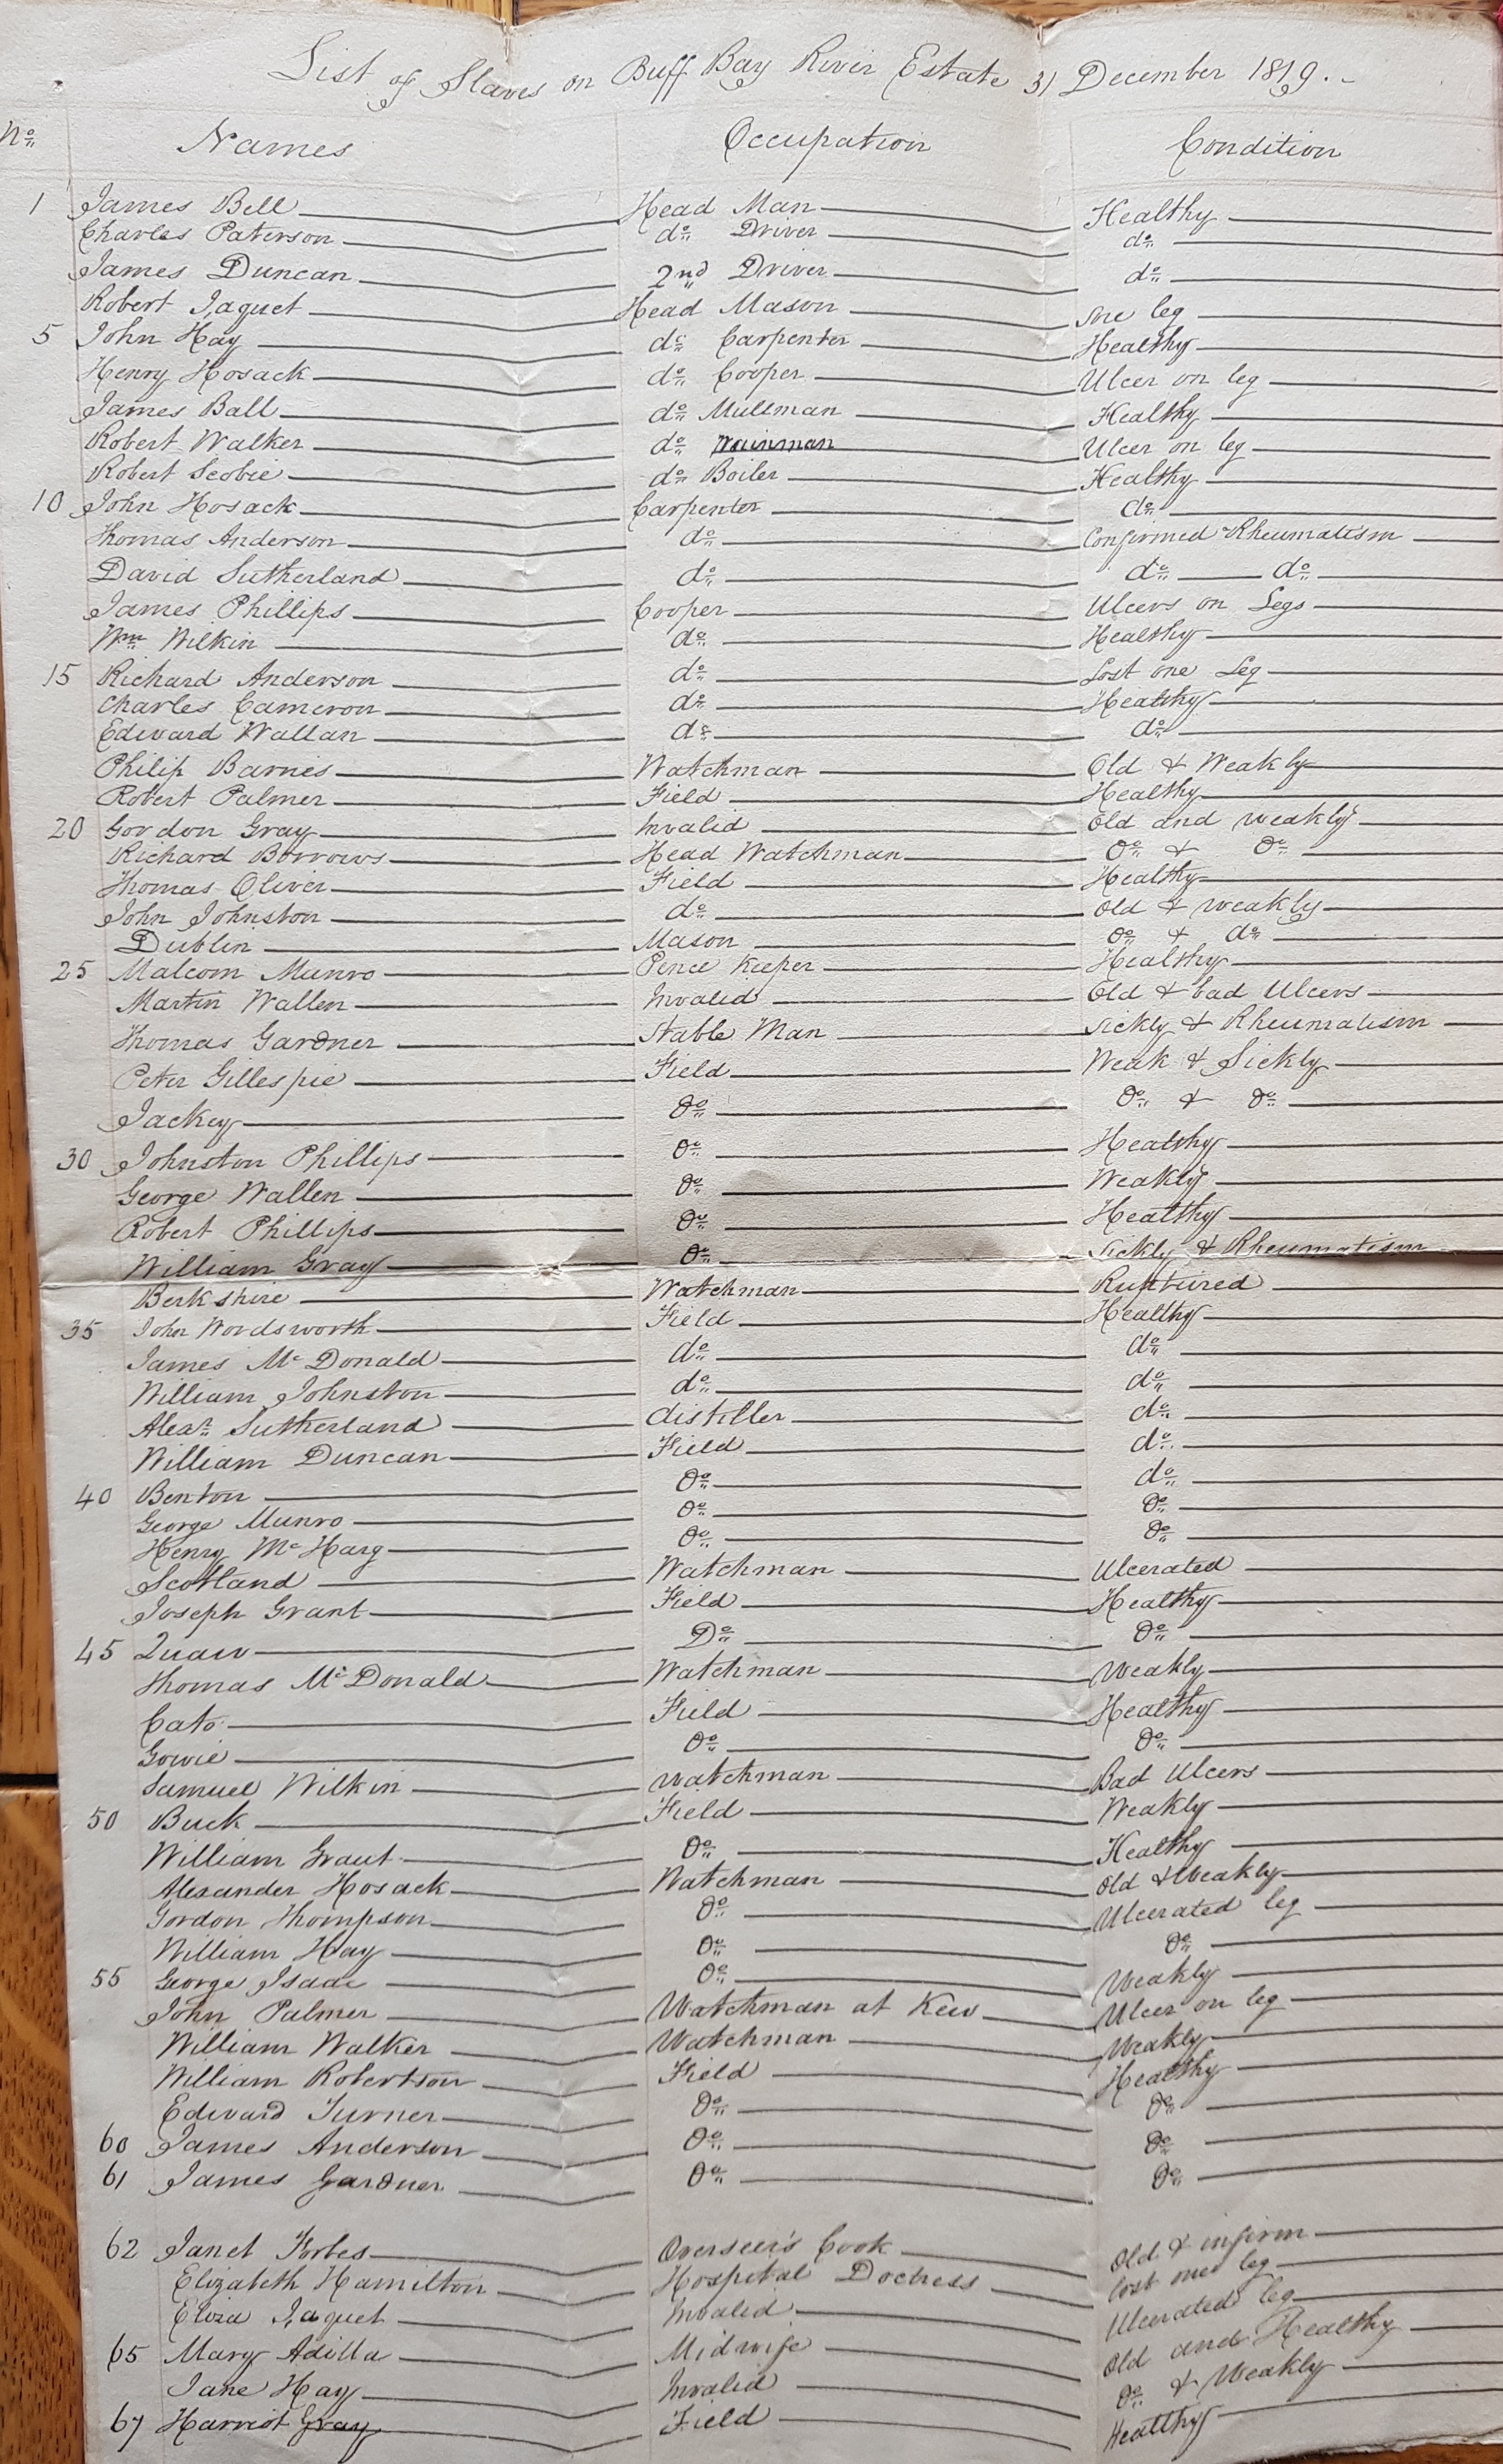 List of Slaves on Buff Bay River Estate 31 December 1819.
No. Names Occupation Condition
1 James Bell Head Man Healthy
Charles Paterson do. Driver do.
James Duncan 2nd Driver do.
Robert Jaquet Head Mason sore leg
5 John Hay do. Carpenter Healthy
Henry Hosack do. Cooper Ulcer on leg
James Ball do. Mullman Healthy
Robert Walker do. Wainman Ulcer on leg
Robert Scobie do. Boiler Healthy
10 John Hosack Carpenter do.
Thomas Anderson do. Confirmed Rheumatism
David Sutherland do. do. do.
James Phillips Cooper Ulcers on Legs
Wm. Wilkin do. Healthy
15 Richard Anderson do. Lost one Leg
Charles Cameron do. Healthy
Edward Wallan do. do.
Philip Barnes Watchman Old & Weakly
Robert Palmer Field Healthy
20 Gordon Gray Invalid Old and weakly
Richard Borrows Head Watchman Do. & Do.
Thomas Oliver Field Healthy
John Johnston do. Old & weakly
Dublin Mason Do. & do.
25 Malcom Munro Pence Keeper Healthy
Martin Wallen Invalid Old & bad Ulcers
Thomas Gardner Stable Man Sickly & Rheumatism
Peter Gillespie Field Weak & Sickly
Jackey Do. Do. & Do.
30 Johnston Phillips Do. Healthy
George Wallen Do. Weakly
Robert Phillips Do. Healthy
William Gray Do. Sickly & Rheumatism
Berkshire Watchman Ruptured
35 John Wordsworth Field Healthy
James McDonald do. do.
William Johnston do. do.
Alexr. Sutherland distiller do.
William Duncan Field do.
40 Benton Do. do.
George Munro Do. Do.
Henry McHarg Do. Do.
Scotland Watchman Ulcerated
Joseph Grant Field Healthy
45 Quaw Do. Do.
Thomas McDonald Watchman Weakly
Cato Field Healthy
Gowie Do. Do.
Samuel Wilkin Watchman Bad Ulcers
50 Buck Field Weakly
William Grant Do. Healthy
Alexander Hosack Watchman Old & Weakly
Gordon Thompson Do. Ulcerated leg
William Hay Do. Do.
55 George Isaac Do. Weakly
John Palmer Watchman at Kew Ulcer on leg
William Walker Watchman Weakly
William Robertson Field Healthy
Edward Turner Do. Do.
60 James Anderson Do. Do.
61 James Gardner Do. Do.
62 Janet Forbes Overseer's Cook Old & infirm
Elizabeth Hamilton Hospital Doctress lost one leg
Eliza Jaquet Invalid Ulcerated leg
65 Mary Adilla Midwife Old and Healthy
Jane Hay Invalid Do. & Weakly
67 Harriot Gray Field Healthy